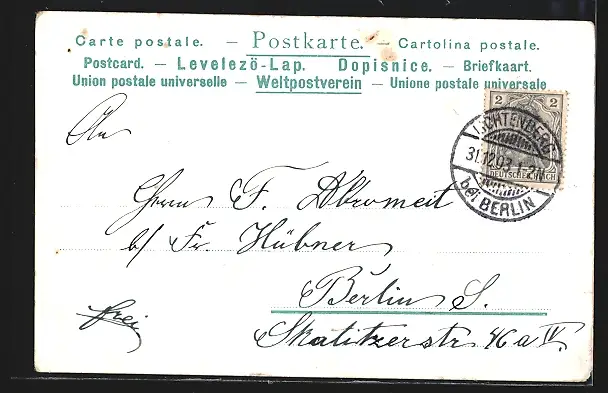 Carte postale. — Postkarte. — Cartolina postale.
Postcard. — Levelezö-Lap. Dopisnice. — Briefkaart.
Union postale universelle — Weltpostverein — Unione postale universale
2 2
DEUTSCHES REICH
LICHTENBERG
31.12.03. 1-2N
bei BERLIN
An
Herrn F. Abromeit
b/ Fr. Hübner
Berlin S.
Skalitzerstr 46a IV.
frei